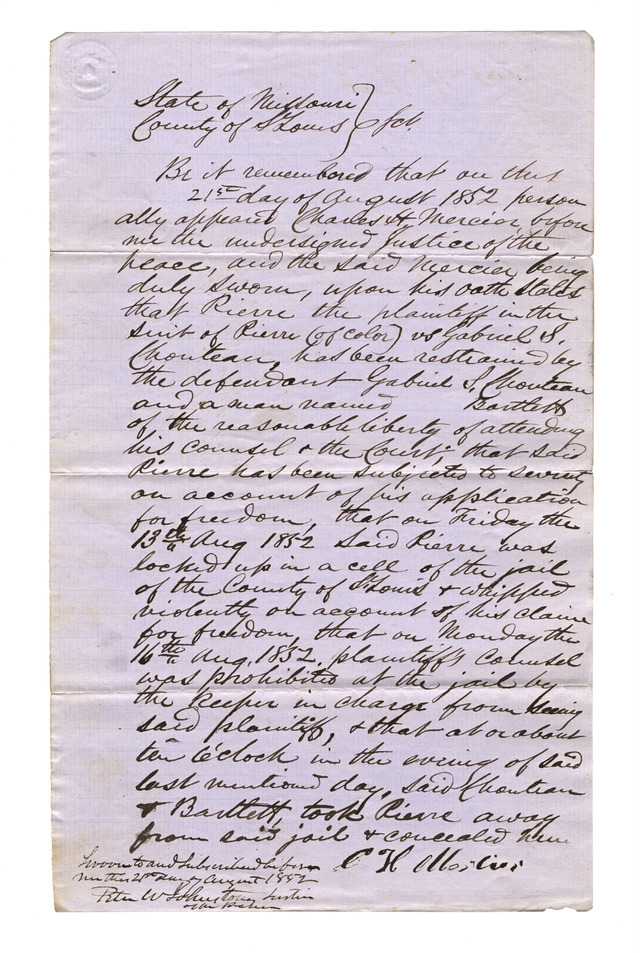 State of Missouri
County of St Louis } Sct.
Be it remembered that on this
21st day of August 1852 person
ally appeared Charles H. Mercier before
me the undersigned Justice of the
peace, and the said Mercier being
duly sworn, upon his oath states
that Pierre the plaintiff in the
suit of Pierre (of color) vs Gabriel S.
Chouteau, has been restrained by
the defendant Gabriel S. Chouteau
and a man named Bartlett
of the reasonable liberty of attending
his counsel & the Court; that said
Pierre has been subjected to severity
on account of his application
for freedom, that on Friday the
13th Aug 1852 said Pierre was
locked up in a cell of the jail
of the County of St Louis & whipped
violently on account of his claim
for freedom, that on Monday the
16th Aug. 1852, plaintiff's Counsel
was prohibited at the jail by
the keeper in charge from seeing
said plaintiff, & that at or about
ten o'clock in the evening of said
last mentioned day, said Chouteau
& Bartlett, took Pierre away
from said jail & concealed him
C H Mercier
Sworn to and Subscribed before
me this 21st day of August 1852
Peter W Johnstone Justice
of the Peace